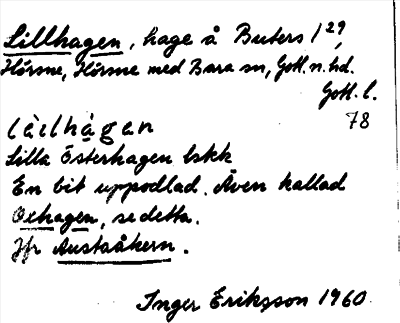 Lillhagen, hage å Buters 1²⁹,
Hörsne, Hörsne med Bara sn, Gotl. n. hd.
Gotl. l.
78
làilhàgan
Lilla Österhagen lskk
En bit uppodlad. Även kallad
Oxhagen, se detta.
Jfr Austaåkern.
Inger Eriksson 1960